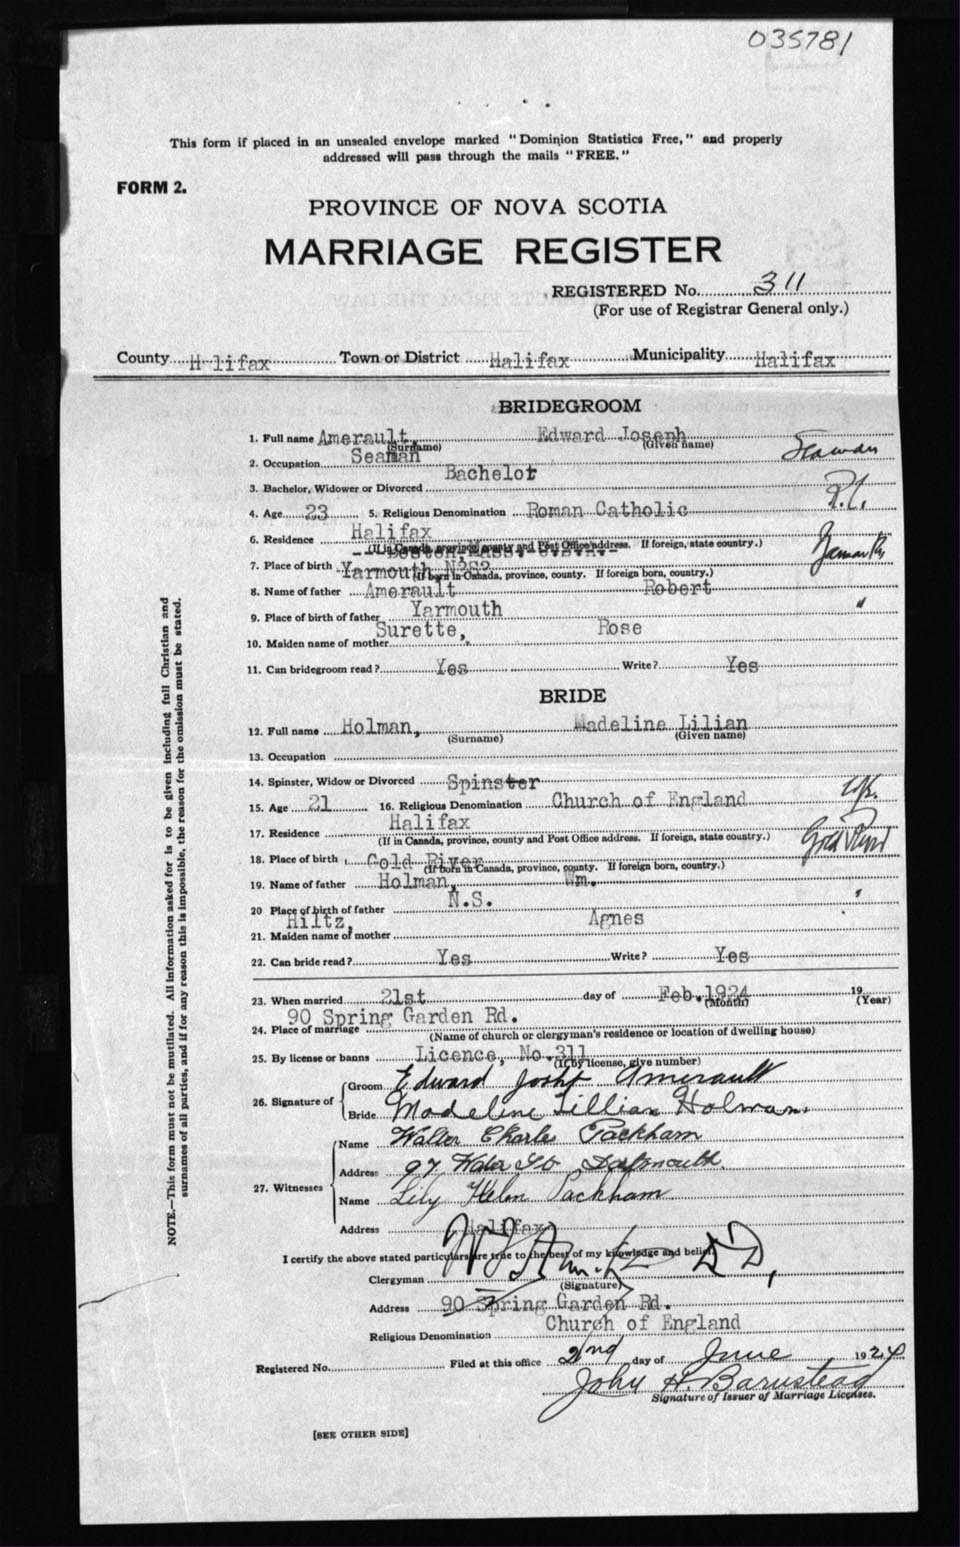 035781
This form if placed in an unsealed envelope marked "Dominion Statistics Free," and properly
addressed will pass through the mails "FREE."
FORM 2.
PROVINCE OF NOVA SCOTIA
MARRIAGE REGISTER
REGISTERED No. 311
(For use of Registrar General only.)
County H lifax Town or District Halifax Municipality Halifax
BRIDEGROOM
1. Full name Amerault, Edward Joseph
(Surname) (Given name)
2. Occupation Seaman Seaman
3. Bachelor, Widower or Divorced Bachelor
4. Age 23 5. Religious Denomination Roman Catholic R.C.
6. Residence Halifax
(If in Canada, province, county and Post Office address. If foreign, state country.)
7. Place of birth Yarmouth
(If born in Canada, province, county. If foreign born, country.)
8. Name of father Amerault Robert
9. Place of birth of father Yarmouth "
10. Maiden name of mother Surette, Rose
11. Can bridegroom read? Yes Write? Yes
BRIDE
12. Full name Holman, Madeline Lilian
(Surname) (Given name)
13. Occupation
14. Spinster, Widow or Divorced Spinster
15. Age 21 16. Religious Denomination Church of England
17. Residence Halifax
(If in Canada, province, county and Post Office address. If foreign, state country.)
18. Place of birth Gold River Gold River
(If born in Canada, province, county. If foreign born, country.)
19. Name of father Holman, Wm.
20 Place of birth of father N.S.
21. Maiden name of mother Hiltz, Agnes
22. Can bride read? Yes Write? Yes
23. When married 21st day of Feb. 1924 19
(Month) (Year)
24. Place of marriage 90 Spring Garden Rd.
(Name of church or clergyman's residence or location of dwelling house)
25. By license or banns Licence, No. 311
(If by license, give number)
26. Signature of
Groom Edward Amerault
Bride Madeline Lillian Holman
27. Witnesses
Name Walter Charles Packham
Address 97 Dartmouth
Name Lily Helen Packham
Address Halifax
I certify the above stated particulars are true to the best of my knowledge and belief.
Clergyman
(Signature)
Address 90 Spring Garden Rd.
Religious Denomination Church of England
Registered No. Filed at this office 2nd day of June 1924
John H. Barnstead
Signature of Issuer of Marriage Licenses.
[SEE OTHER SIDE]
NOTE.—This form must not be mutilated. All information asked for is to be given including full Christian and
surnames of all parties, and if for any reason this is impossible, the reason for the omission must be stated.